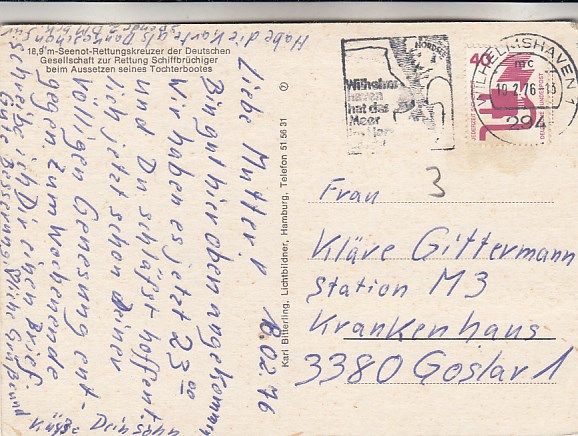 18,9 m-Seenot-Rettungskreuzer der Deutschen
Gesellschaft zur Rettung Schiffbrüchiger
beim Aussetzen seines Tochterbootes
Habe die Karte als Dankeschön für
18.02.76
Liebe Mutter!
Bin gut hier oben angekommen
Wir haben es jetzt 23.00
und Du schläfst hoffent-
lich jetzt schon Deiner
10 gen Genesung ent-
gegen zum Wochenende
schreibe ich Dir einen Brief
Gute Besserung, Grüße und
Küsse Dein Sohn
Karl Bitterling, Lichtbildner, Hamburg, Telefon 51 56 31
NORDSEE
Wilhelms
haven
hat das
Meer
WILHELMSHAVEN 1
mc
10.2.76-13
294
40
DEUTSCHE BUNDESPOST
JEDERZEIT SICHERHEIT
3
Frau
Kläre Gittermann
Station M3
Krankenhaus
3380 Goslar 1